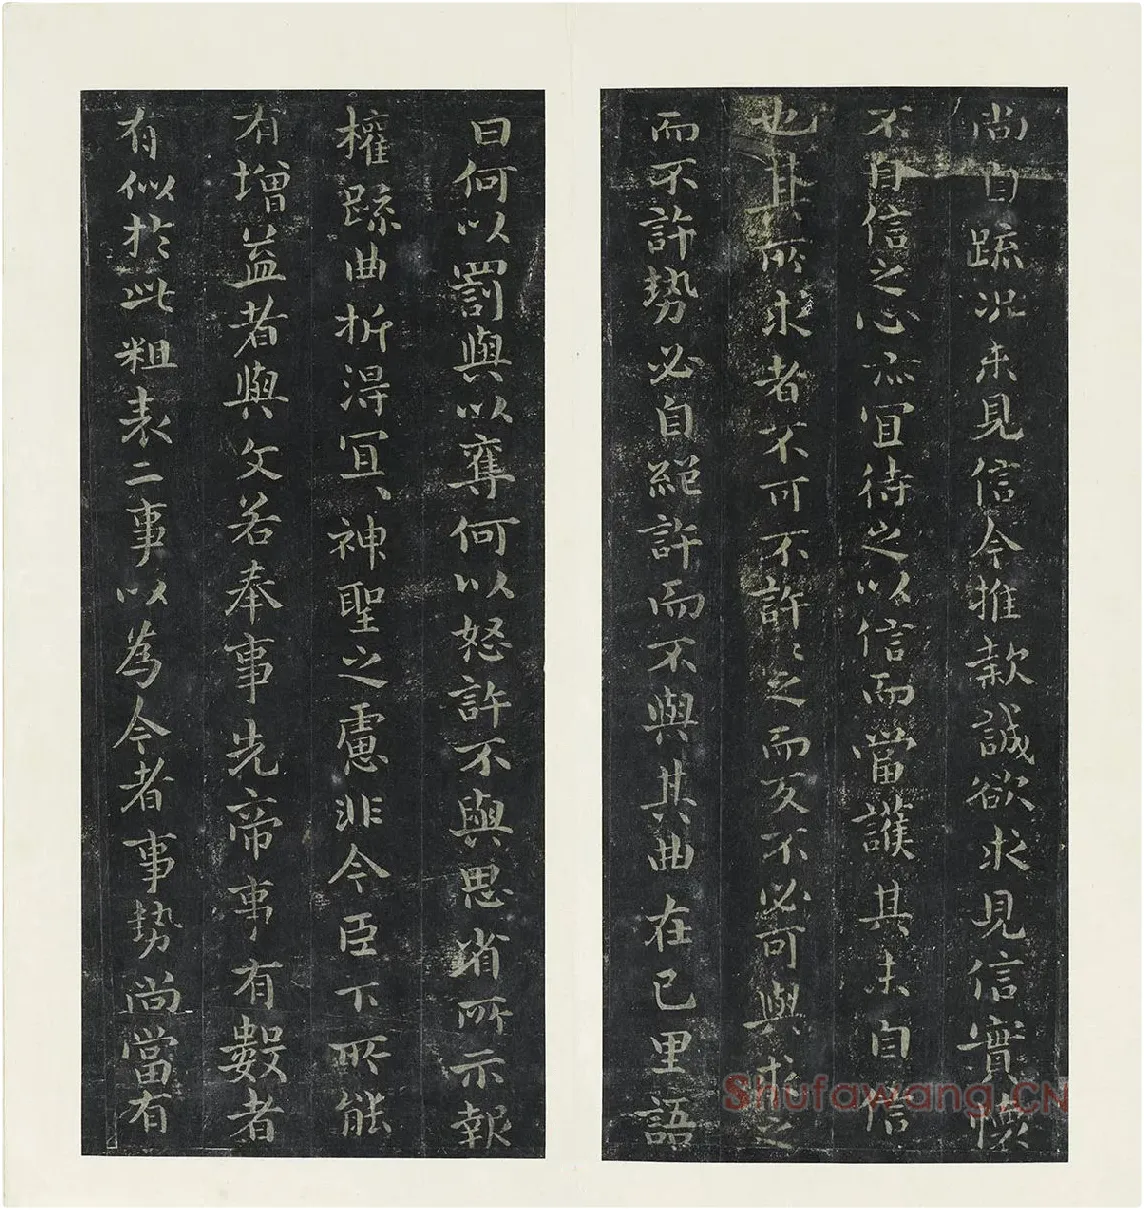 尚自疏況未見信今推款誠欲求見信實懷
不自信之心亦宜待之以信而當護其未自信
也其所求者不可不許〻之而反不必可與求之
而不許勢必自絕許而不與其曲在己里語
曰何以罰與以奪何以怒許不與思省所示報
權疏曲折得宜〻神聖之慮非今臣下所能
有增益昔與文若奉事先帝事有數者
有似於此粗表二事以為今者事勢尚當有
Shufawang.CN